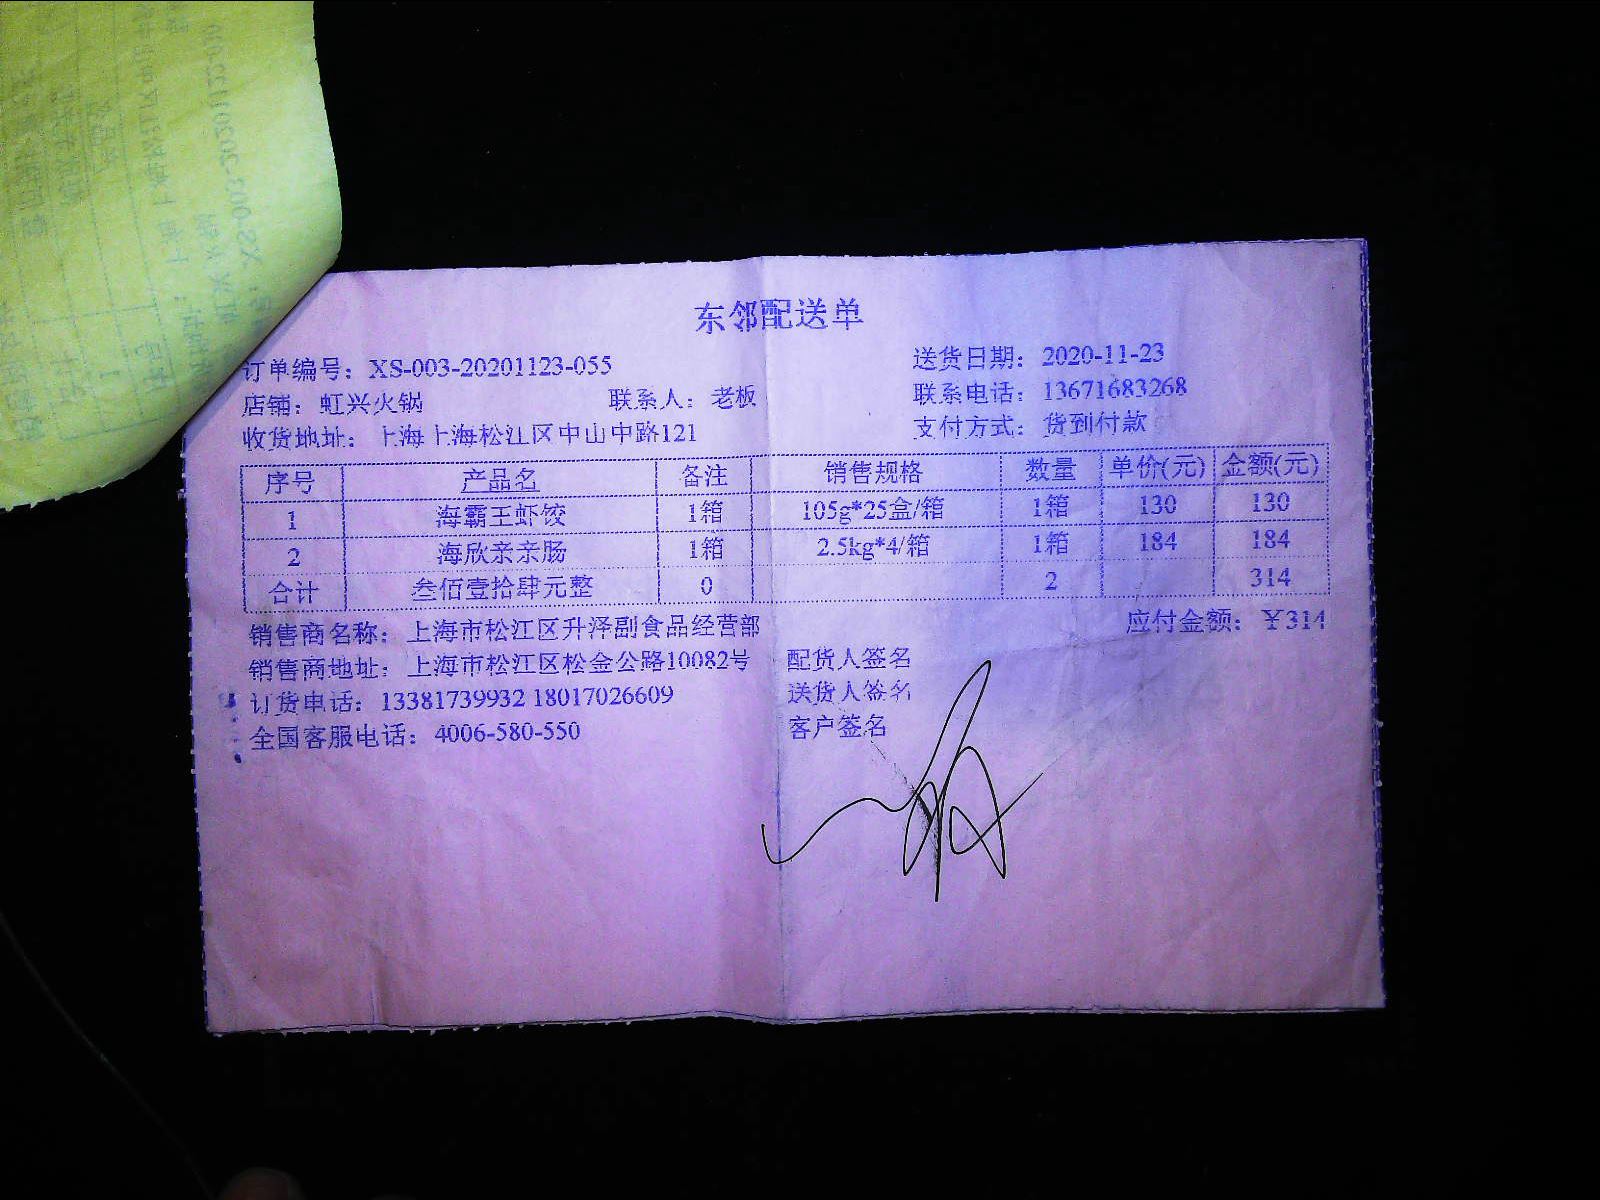 东邻配送单
订单编号：XS-003-20201123-055 送货日期：2020-11-23
店铺：虹兴火锅 联系人：老板 联系电话：13671683268
收货地址：上海上海松江区中山中路121 支付方式：货到付款
序号 产品名 备注 销售规格 数量 单价(元) 金额(元)
1 海霸王虾饺 1箱 105g*25盒/箱 1箱 130 130
2 海欣亲亲肠 1箱 2.5kg*4/箱 1箱 184 184
合计 叁佰壹拾肆元整 0 2 314
销售商名称：上海市松江区升泽副食品经营部 应付金额：￥314
销售商地址：上海市松江区松金公路10082号 配货人签名
订货电话：13381739932 18017026609 送货人签名
全国客服电话：4006-580-550 客户签名